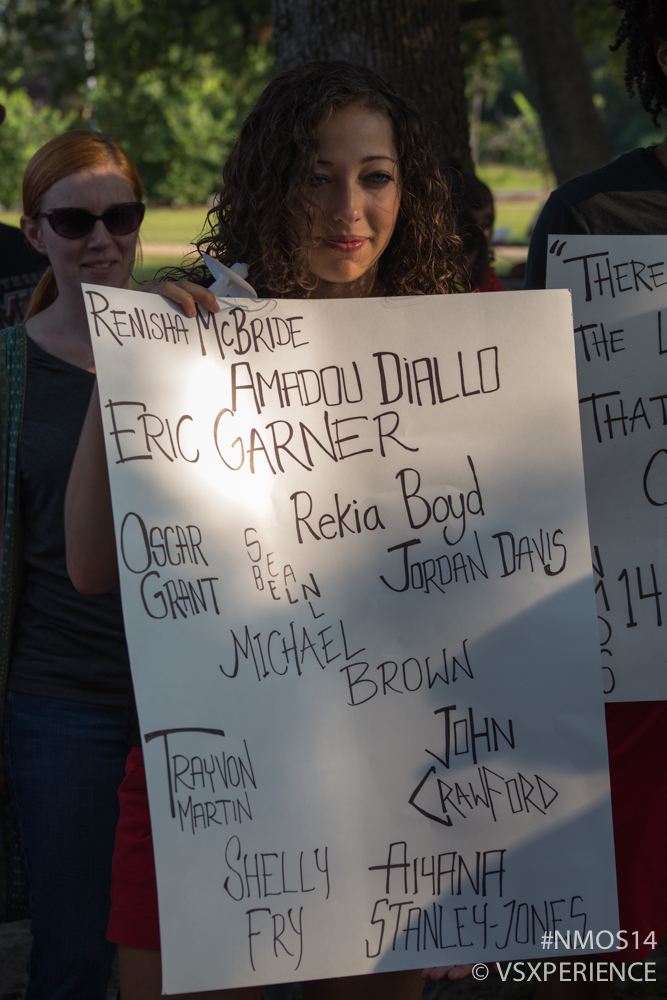 RENISHA MCBRIDE
AMADOU DIALLO
ERIC GARNER
Rekia Boyd
OSCAR
GRANT
SEAN
BELL
JORDAN DAVIS
MICHAEL
BROWN
TRAYVON
MARTIN
JOHN
CRAWFORD
SHELLY
FRY
AIYANA
STANLEY-JONES
"THERE
THE
THAT
14
#NMOS14
© VSXPERIENCE